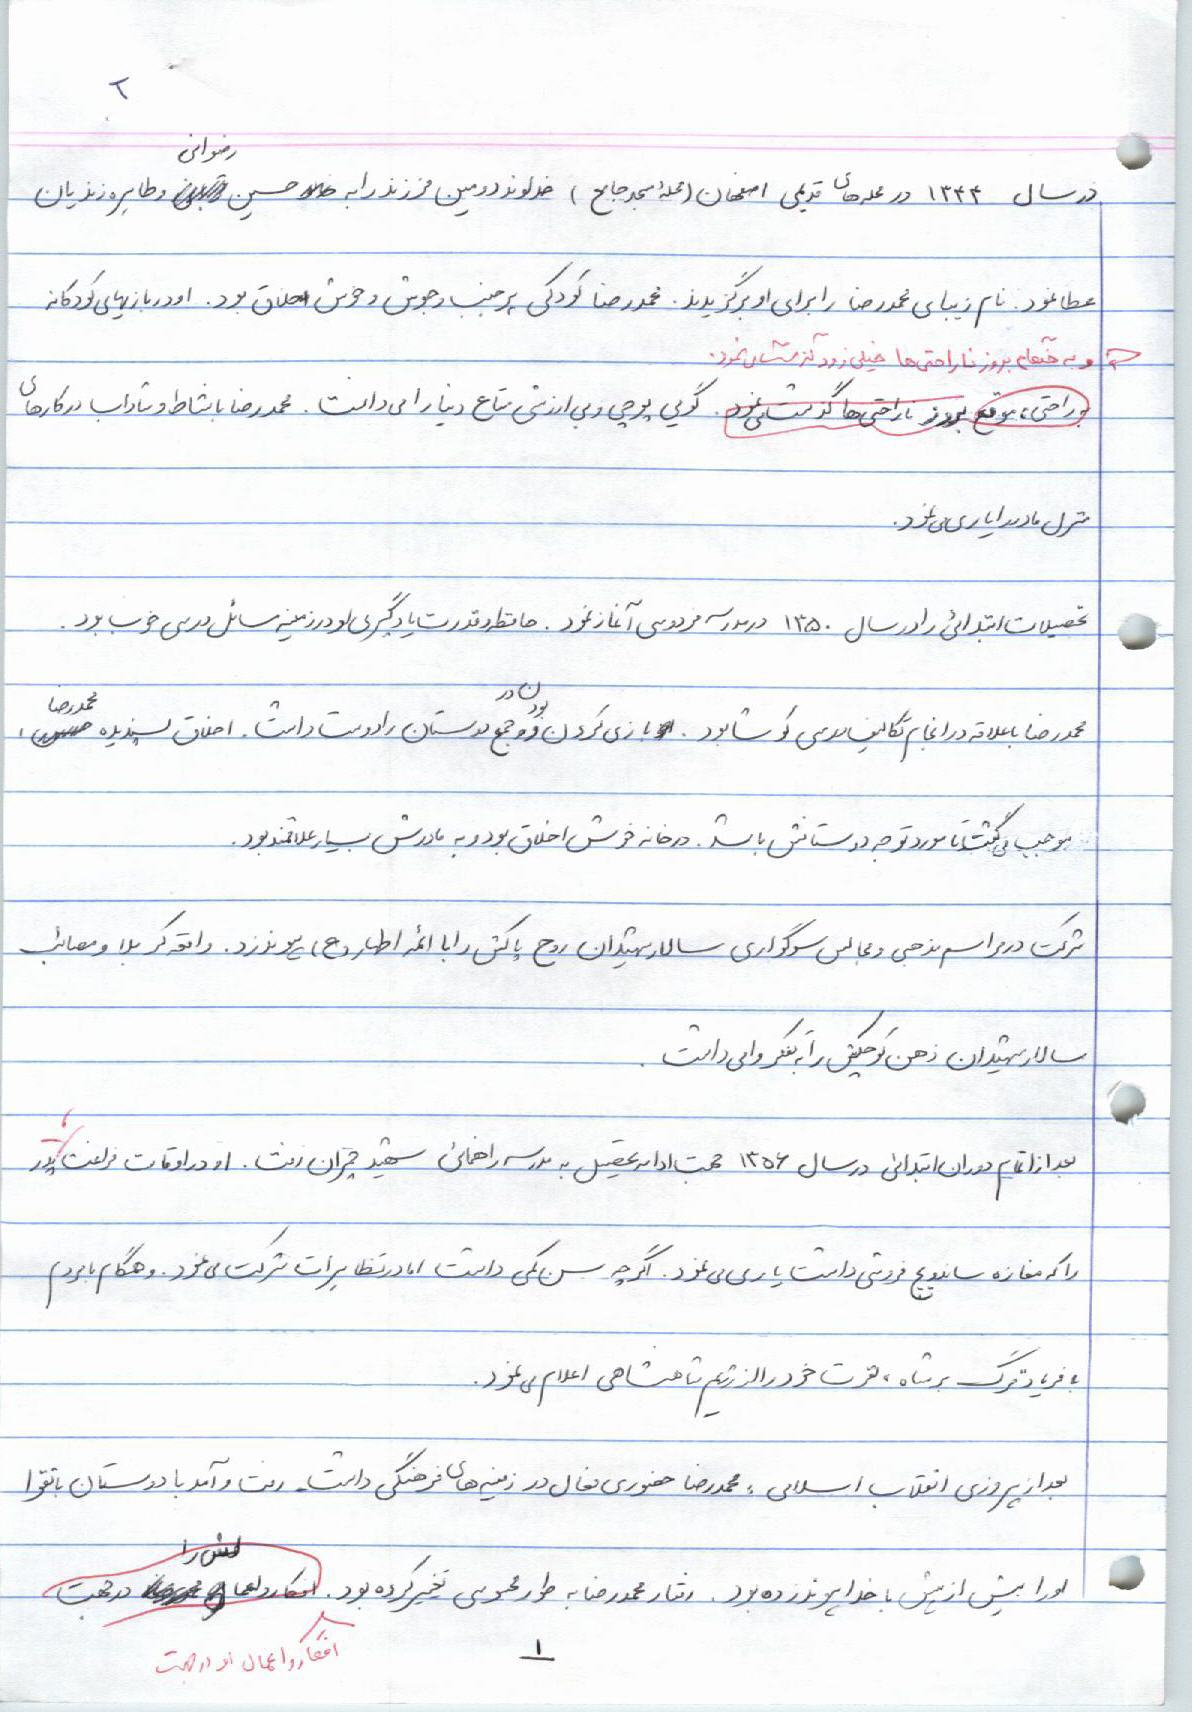 ۲
رضوانی
در سال ۱۳۴۴ در محله‌های قدیمی اصفهان (محلهٔ مسجد جامع) خداوند دومین فرزند را به حسین و طاهره زندیان
عطا نمود. نام زیبای محمدرضا را برای او برگزیدند. محمدرضا کودکی پر جنب و جوش و خوش اخلاق بود. او در بازیهای کودکانه
و به هنگام بروز ناراحتی‌ها خیلی زود گذشت می‌نمود.
براحتی، موقع بروز ناراحتی‌ها گذشت می‌نمود. گویی پوچی و بی ارزشی متاع دنیا را می‌دانست. محمدرضا با نشاط و شاداب در کارهای
منزل مادر را یاری می‌نمود.
تحصیلات ابتدائی را در سال ۱۳۵۰ در مدرسه فردوسی آغاز نمود. حافظه و قدرت یادگیری او در زمینه مسائل درسی خوب بود.
بودن در
محمدرضا
محمدرضا با علاقه در انجام تکالیف درسی کوشا بود. بازی کردن و جمع دوستان را دوست داشت. اخلاق پسندیده
موجب می‌گشت تا مورد توجه دوستانش باشد. در خانه خوش اخلاق بود و به مادرش بسیار علاقمند بود.
شرکت در مراسم مذهبی و مجالس سوگواری سالار شهیدان روح پاکش را با ائمه اطهار (ع) پیوند زد. واقعه کربلا و مصائب
سالار شهیدان ذهن کوچکش را به تفکر وا می‌داشت.
بعد از اتمام دوران ابتدائی در سال ۱۳۵۶ جهت ادامه تحصیل به مدرسه راهنمائی شهید چمران رفت. او در اوقات فراغت، پدر
را که مغازه ساندویچ فروشی داشت یاری می‌نمود. اگر چه سن کمی داشت اما در تظاهرات شرکت می‌نمود. و هنگام با مردم
با فریاد مرگ بر شاه، نفرت خود را از رژیم شاهنشاهی اعلام می‌نمود.
بعد از پیروزی انقلاب اسلامی، محمدرضا حضوری فعال در زمینه‌های فرهنگی داشت. رفت و آمد با دوستان با تقوا
او را بیش از پیش با خدا پیوند زده بود. رفتار محمدرضا به طور محسوسی تغییر کرده بود. افکار و اعمالش را در جهت
افکار و اعمال او در جهت
۱